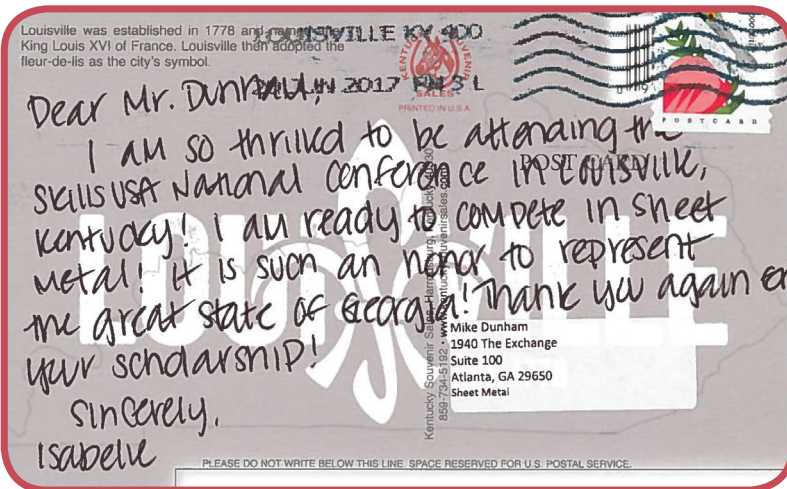 Louisville was established in 1778 and
King Louis XVI of France. Louisville then adopted the
fleur-de-lis as the city's symbol.
LOUISVILLE KY 400
JUN 2017 PM 3 L
KENTUCKY SOUVENIR
SALES
PRINTED IN U.S.A
POSTCARD
POST CARD
Dear Mr. Dunham,
I am so thrilled to be attending the
SkillsUSA National Conference in Louisville,
Kentucky! I am ready to compete in sheet
metal! It is such an honor to represent
the great state of Georgia! Thank you again
your scholarship!
Sincerely,
Isabelle
LOUISVILLE
Kentucky Souvenir Sales, Harrodsburg, Kentucky 40330
859-734-5192 • www.kentuckysouvenirsales.com
Mike Dunham
1940 The Exchange
Suite 100
Atlanta, GA 29650
Sheet Metal
PLEASE DO NOT WRITE BELOW THIS LINE. SPACE RESERVED FOR U.S. POSTAL SERVICE.